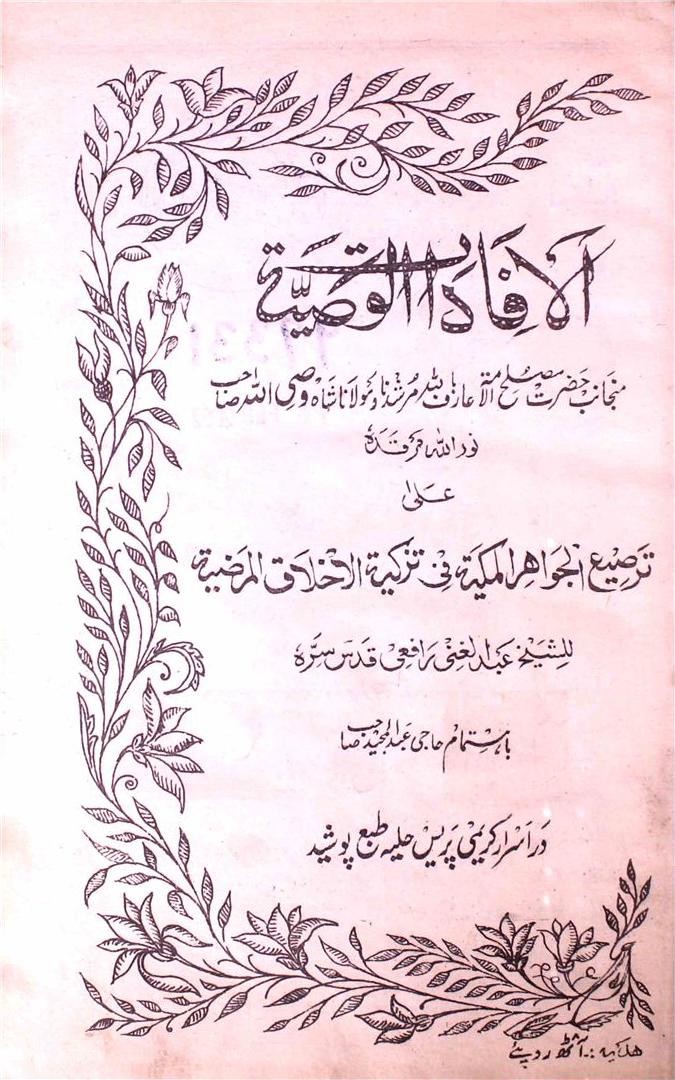 الافادات الوصیۃ
منجانب حضرت مصلح الامۃ عارف باللہ مرشدنا و مولانا شاہ وصی اللہ صاحب
نور اللہ مرقدہ
علیٰ
ترصیع الجواھر المکیۃ فی تزکیۃ الاخلاق المرضیۃ
للشیخ عبدالغنی رافعی قدس سرہ
باہتمام حاجی عبدالمجید صاحب
در اسرار کریمی پریس حلیہ طبع پوشید
ھدیہ :۔ آٹھ روپئے